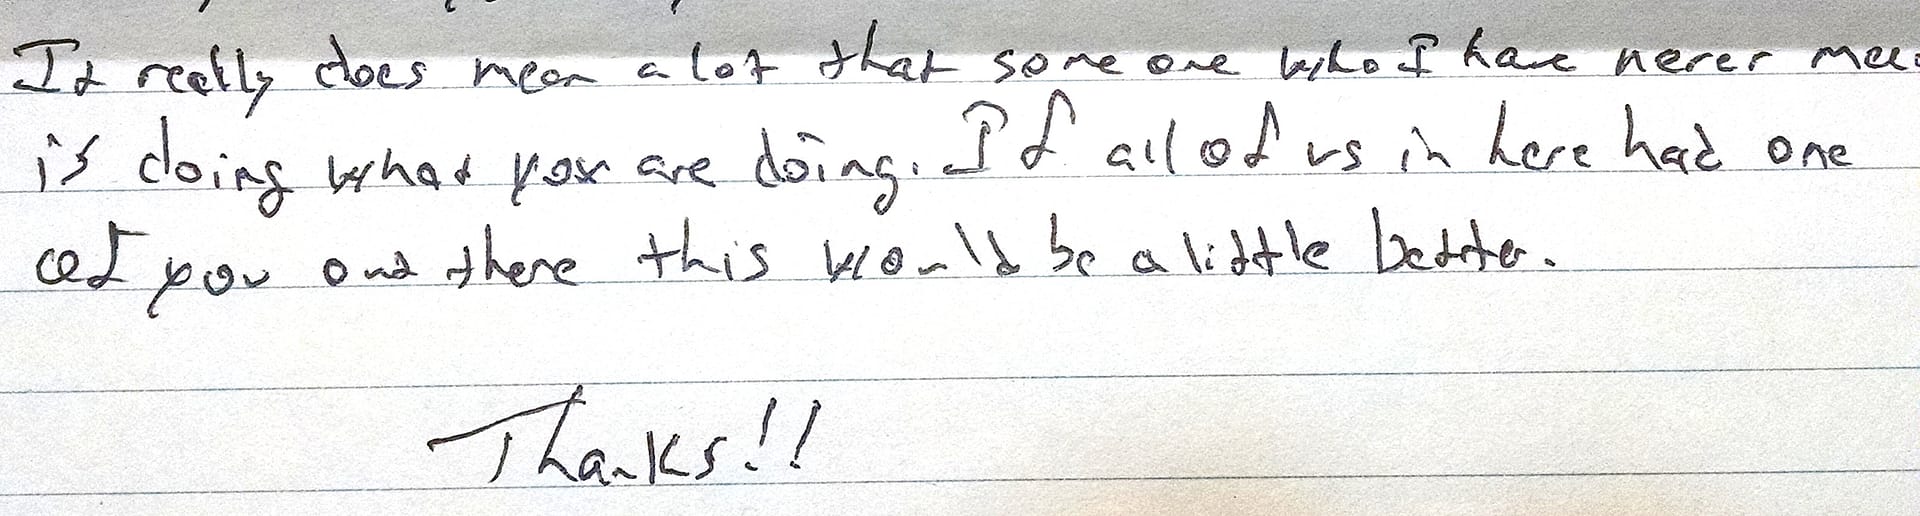 It really does mean a lot that some one who I have never mee
is doing what you are doing. If all of us in here had one
of you out there this would be a little better.
Thanks!!